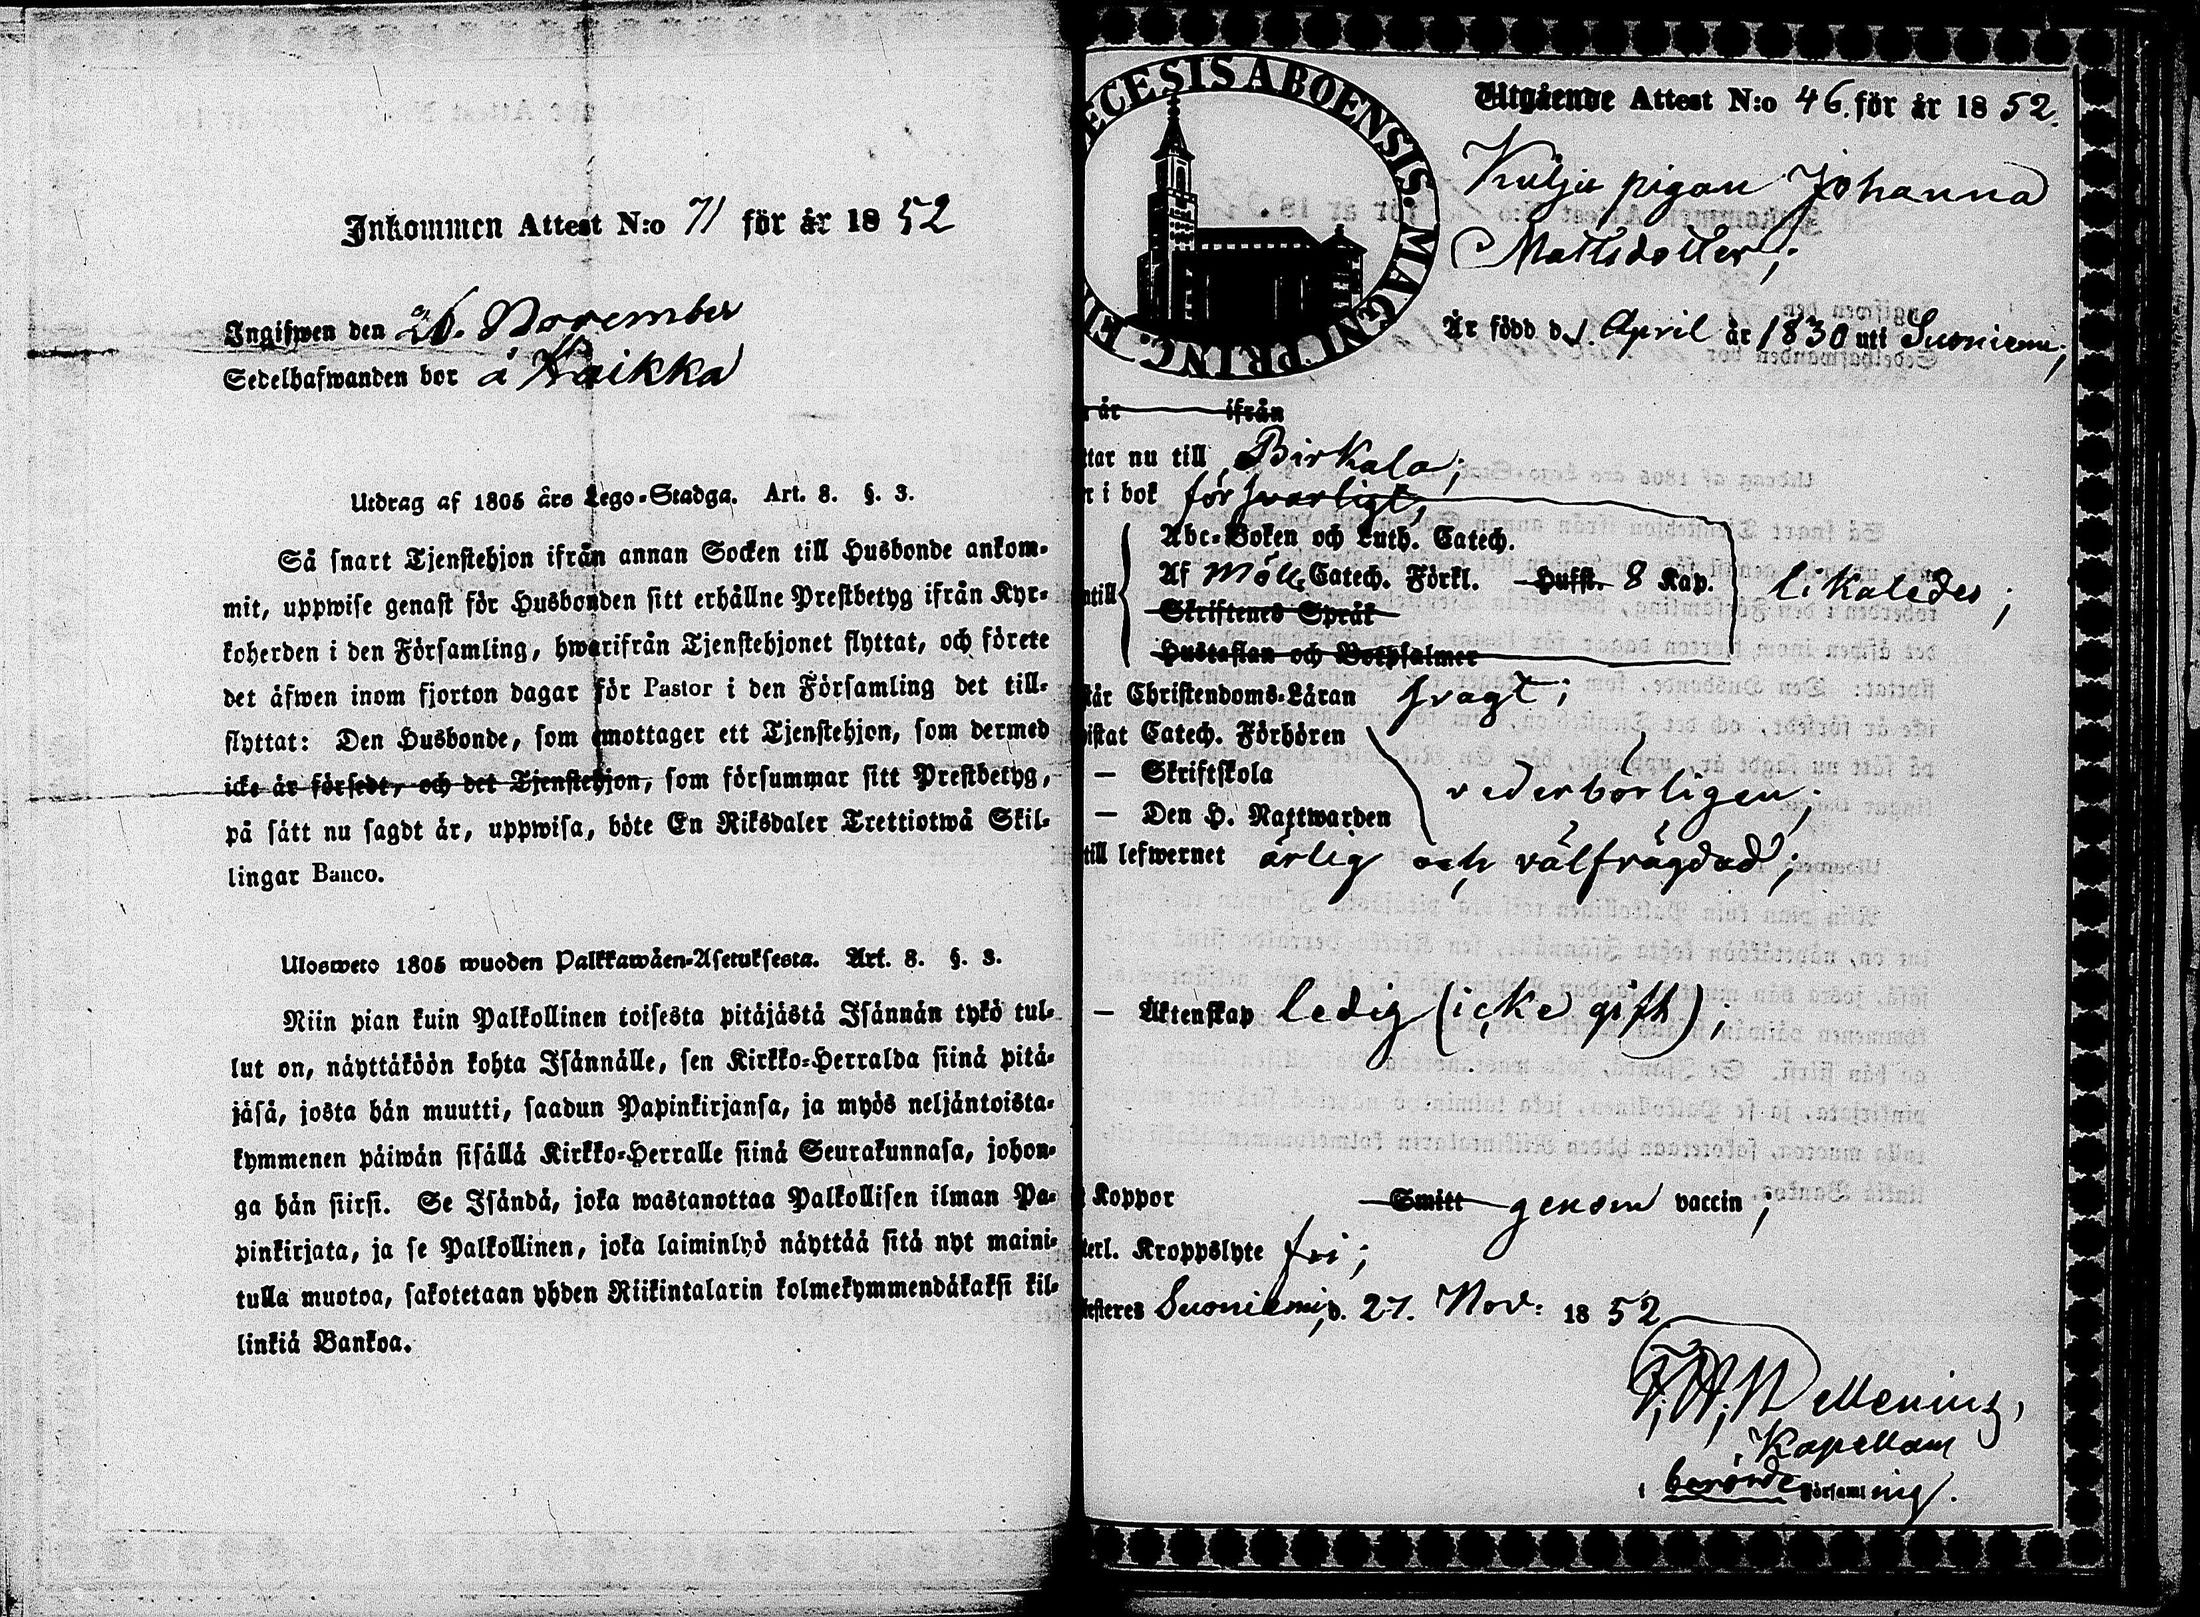 Inkommen Attest N:o 71 för år 1852
Ingifwen den November
Sedelhafwanden bor å Kaikka
Utdrag af 1805 års Lego-Stadga. Art. 8. §. 3.
Så snart Tjenstehjon ifrån annan Socken till Husbonde ankom-
mit, uppwise genast för Husbonden sitt erhållne Prestbetyg ifrån Kyr-
koherden i den Församling, hwarifrån Tjenstehjonet flyttat, och förete
det äfwen inom fjorton dagar för Pastor i den Församling det till-
flyttat: Den Husbonde, som emottager ett Tjenstehjon, som dermed
icke är försedt, och det Tjenstehjon, som försummar sitt Prestbetyg,
på sätt nu sagdt är, uppwisa, böte En Riksdaler Trettiotwå Skil-
lingar Banco.
Ulosweto 1805 wuoden Palkkawäen-Asetuksesta. Art. 8. §. 3.
Niin pian kuin Palkollinen toisesta pitäjästä Isännän tykö tul-
lut on, näyttäköön kohta Isännälle, sen Kirkko-Herralda siinä pitä-
jäsä, josta hän muutti, saadun Papinkirjansa, ja myös neljäntoista-
kymmenen päiwän sisällä Kirkko-Herralle siinä Seurakunnasa, johon-
ga hän siirsi. Se Isändä, joka wastanottaa Palkollisen ilman Pa-
pinkirjata, ja se Palkollinen, joka laiminlyö näyttää sitä nyt maini-
tulla muotoa, sakotetaan yhden Riikintalarin kolmekymmendäkaksi kil-
linkiä Bankoa.
ECESIS ABOENSIS. MAGNI PRINC. FI
Utgående Attest N:o 46. för år 1852.
pigan Johanna
Mattsdotter;
Är född d. 1. April år 1830 uti Suoniemi;
år ifrån
ttar nu till Birkala;
r i bok försvarligt,
Abc-Boken och Luth. Catech.
Af Möll. Catech. Förkl. Hufst. 8 Kap. likaledes;
ntill
Skriftenes Språk
Hustaflan och Botpsalmer
tår Christendoms-Läran svagt;
istat Catech. Förhören
— Skriftskola vederbörligen;
— Den H. Nattwarden
till lefwernet ärlig och välfrägdad;
— Äktenskap ledig (icke gift);
Koppor Smitt genom vaccin;
terl. Kroppslyte fri;
testeres Suoniemi, d. 27. Nov: 1852
Kapellan
i berörde Församling.